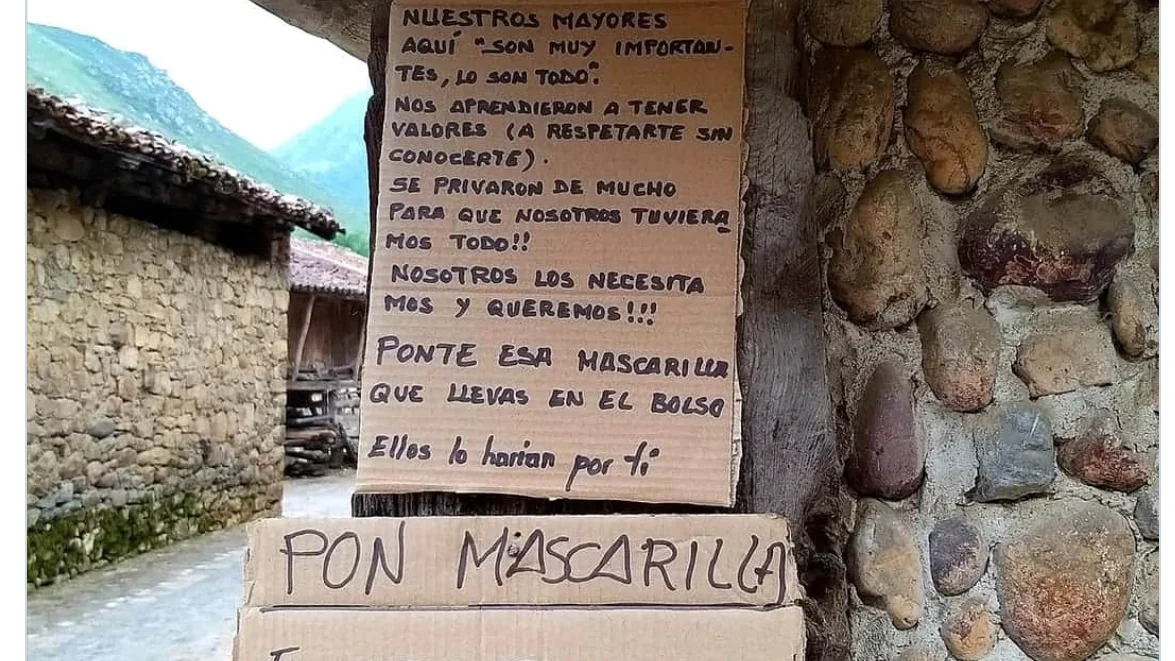 NUESTROS MAYORES
AQUÍ "SON MUY IMPORTAN-
TES, LO SON TODO".
NOS APRENDIERON A TENER
VALORES (A RESPETARTE SIN
CONOCERTE).
SE PRIVARON DE MUCHO
PARA QUE NOSOTROS TUVIERA
MOS TODO!!
NOSOTROS LOS NECESITA
MOS Y QUEREMOS!!!
PONTE ESA MASCARILLA
QUE LLEVAS EN EL BOLSO
Ellos lo harian por ti
PON MASCARILLA